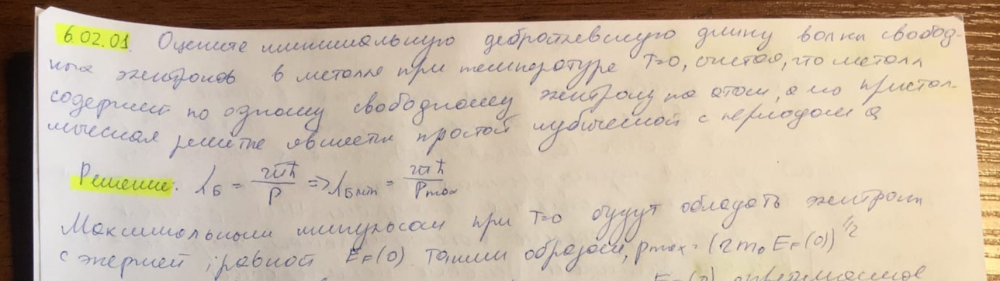 6.02.01. Оцените минимальную дебройлевскую длину волны свобод-
ных электронов в металле при температуре T=0, считая, что металл
содержит по одному свободному электрону на атом, а его кристал-
лическая решетка является простой кубической с периодом a
Решение. λБ = 2πħ/P => λБmin = 2πħ/Pmax
Максимальным импульсом при T=0 будут обладать электроны
с энергией, равной EF(0) таким образом, pmax = (2m0 EF(0))^1/2
EF(0)